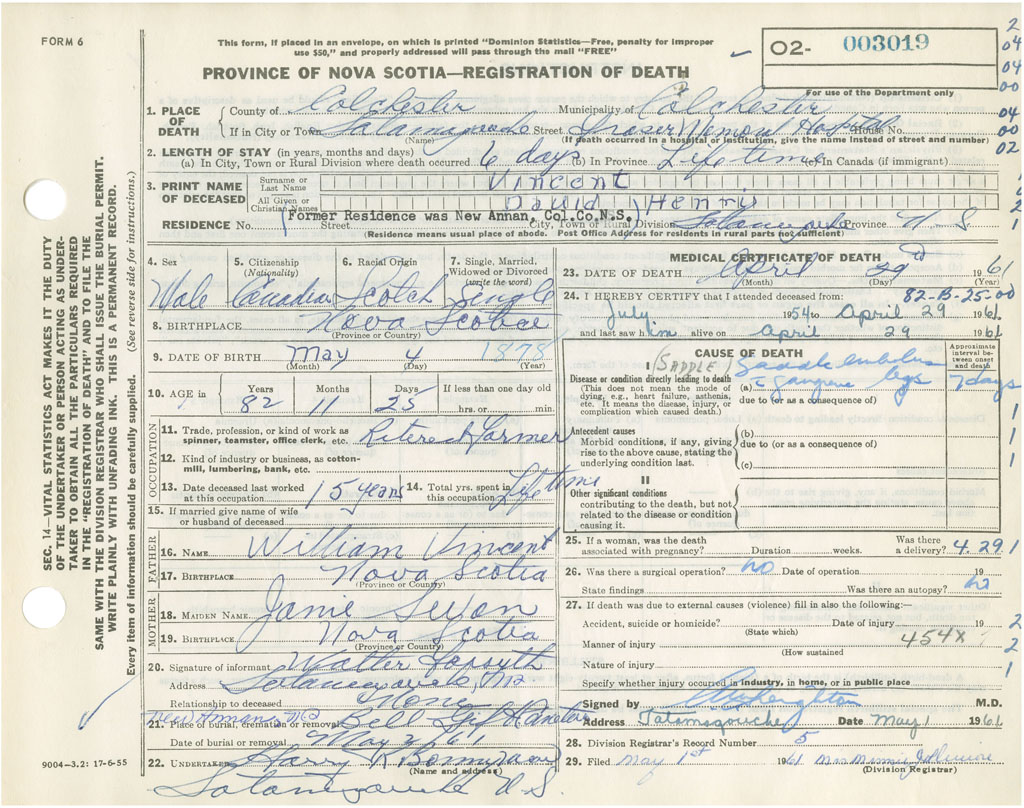 FORM 6
This form, if placed in an envelope, on which is printed "Dominion Statistics—Free, penalty for improper
use $50," and properly addressed will pass through the mail "FREE"
PROVINCE OF NOVA SCOTIA—REGISTRATION OF DEATH
O2- 003019
For use of the Department only
2
04
04
00
04
00
02
1. PLACE OF DEATH
County of Colchester Municipality of Colchester
If in City or Town Tatamagouche Street Fraser Memori Hospital House No.
(Name) (If death occurred in a hospital or institution, give the name instead of street and number)
2. LENGTH OF STAY (in years, months and days)
(a) In City, Town or Rural Division where death occurred 6 days (b) In Province Life time (c) In Canada (if immigrant)
3. PRINT NAME OF DECEASED
Surname or Last Name Vincent
All Given or Christian Names David Henry
Former Residence was New Annan, Col.Co.N.S.
RESIDENCE No. Street City, Town or Rural Division Tatamagouche Province N.S.
(Residence means usual place of abode. Post Office Address for residents in rural parts not sufficient)
4. Sex Male
5. Citizenship (Nationality) Canadian
6. Racial Origin Scotch
7. Single, Married, Widowed or Divorced (write the word) Single
8. BIRTHPLACE Nova Scotia
(Province or Country)
9. DATE OF BIRTH May 4 1878
(Month) (Day) (Year)
10. AGE in Years 82 Months 11 Days 25 If less than one day old hrs. or min.
OCCUPATION
11. Trade, profession, or kind of work as spinner, teamster, office clerk, etc. Farmer
12. Kind of industry or business, as cotton-mill, lumbering, bank, etc.
13. Date deceased last worked at this occupation 15 years
14. Total yrs. spent in this occupation Life time
15. If married give name of wife or husband of deceased
FATHER
16. NAME William Vincent
17. BIRTHPLACE Nova Scotia
(Province or Country)
MOTHER
18. MAIDEN NAME Janie
19. BIRTHPLACE Nova Scotia
(Province or Country)
20. Signature of informant Walter Forsyth
Address Tatamagouche, NS
Relationship to deceased None
21. Place of burial, cremation or removal
Date of burial or removal May 2/61
22. UNDERTAKER Harry
(Name and address)
Tatamagouche N.S.
MEDICAL CERTIFICATE OF DEATH
23. DATE OF DEATH April 29 1961
(Month) (Day) (Year)
24. I HEREBY CERTIFY that I attended deceased from: 82-B-25-00
July 1954 to April 29 1961
and last saw him alive on April 29 1961
CAUSE OF DEATH
Approximate interval between onset and death
I (SADDLE) Saddle embolus
Disease or condition directly leading to death
(This does not mean the mode of dying, e.g., heart failure, asthenia, etc. It means the disease, injury, or complication which caused death.)
(a) c gangrene legs 7 days
due to (or as a consequence of)
Antecedent causes
Morbid conditions, if any, giving rise to the above cause, stating the underlying condition last.
(b)
due to (or as a consequence of)
(c)
II
Other significant conditions
contributing to the death, but not related to the disease or condition causing it.
25. If a woman, was the death associated with pregnancy? Duration weeks. Was there a delivery? 4.29 1
26. Was there a surgical operation? no Date of operation 19
State findings Was there an autopsy? no
27. If death was due to external causes (violence) fill in also the following:—
Accident, suicide or homicide? Date of injury 19 2
(State which)
Manner of injury 454X 2
(How sustained)
Nature of injury 1
Specify whether injury occurred in industry, in home, or in public place
Signed by M.D.
Address Tatamagouche Date May 1 1961
28. Division Registrar's Record Number 5
29. Filed May 1st 1961 Mrs Minnie
(Division Registrar)
SEC. 14—VITAL STATISTICS ACT MAKES IT THE DUTY
OF THE UNDERTAKER OR PERSON ACTING AS UNDER-
TAKER TO OBTAIN ALL THE PARTICULARS REQUIRED
IN THE "REGISTRATION OF DEATH" AND TO FILE THE
SAME WITH THE DIVISION REGISTRAR WHO SHALL ISSUE THE BURIAL PERMIT.
WRITE PLAINLY WITH UNFADING INK. THIS IS A PERMANENT RECORD.
Every item of information should be carefully supplied. (See reverse side for instructions.)
9004-3.2: 17-6-55